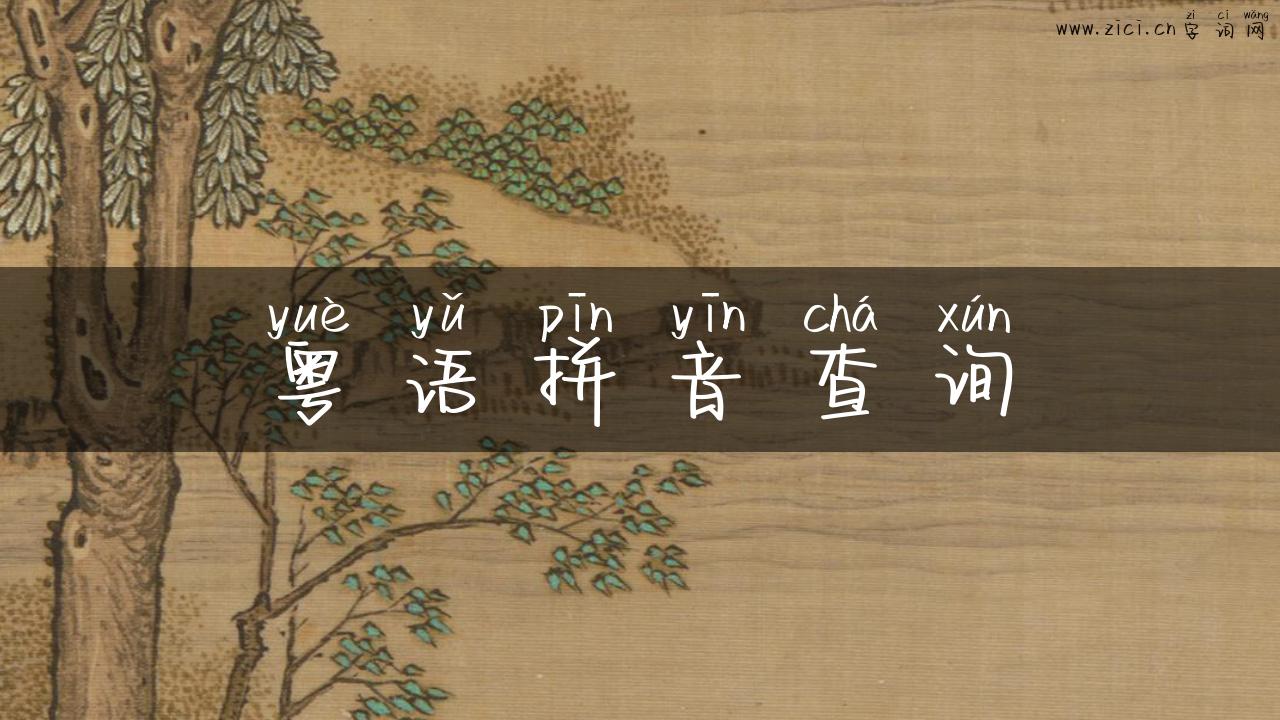 zì cí wǎng
www.zici.cn 字 词 网
yuè yǔ pīn yīn chá xún
粤 语 拼 音 查 询